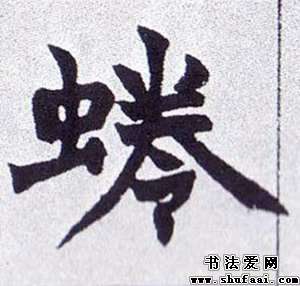 蜷
书法爱网
www.shufaai.com